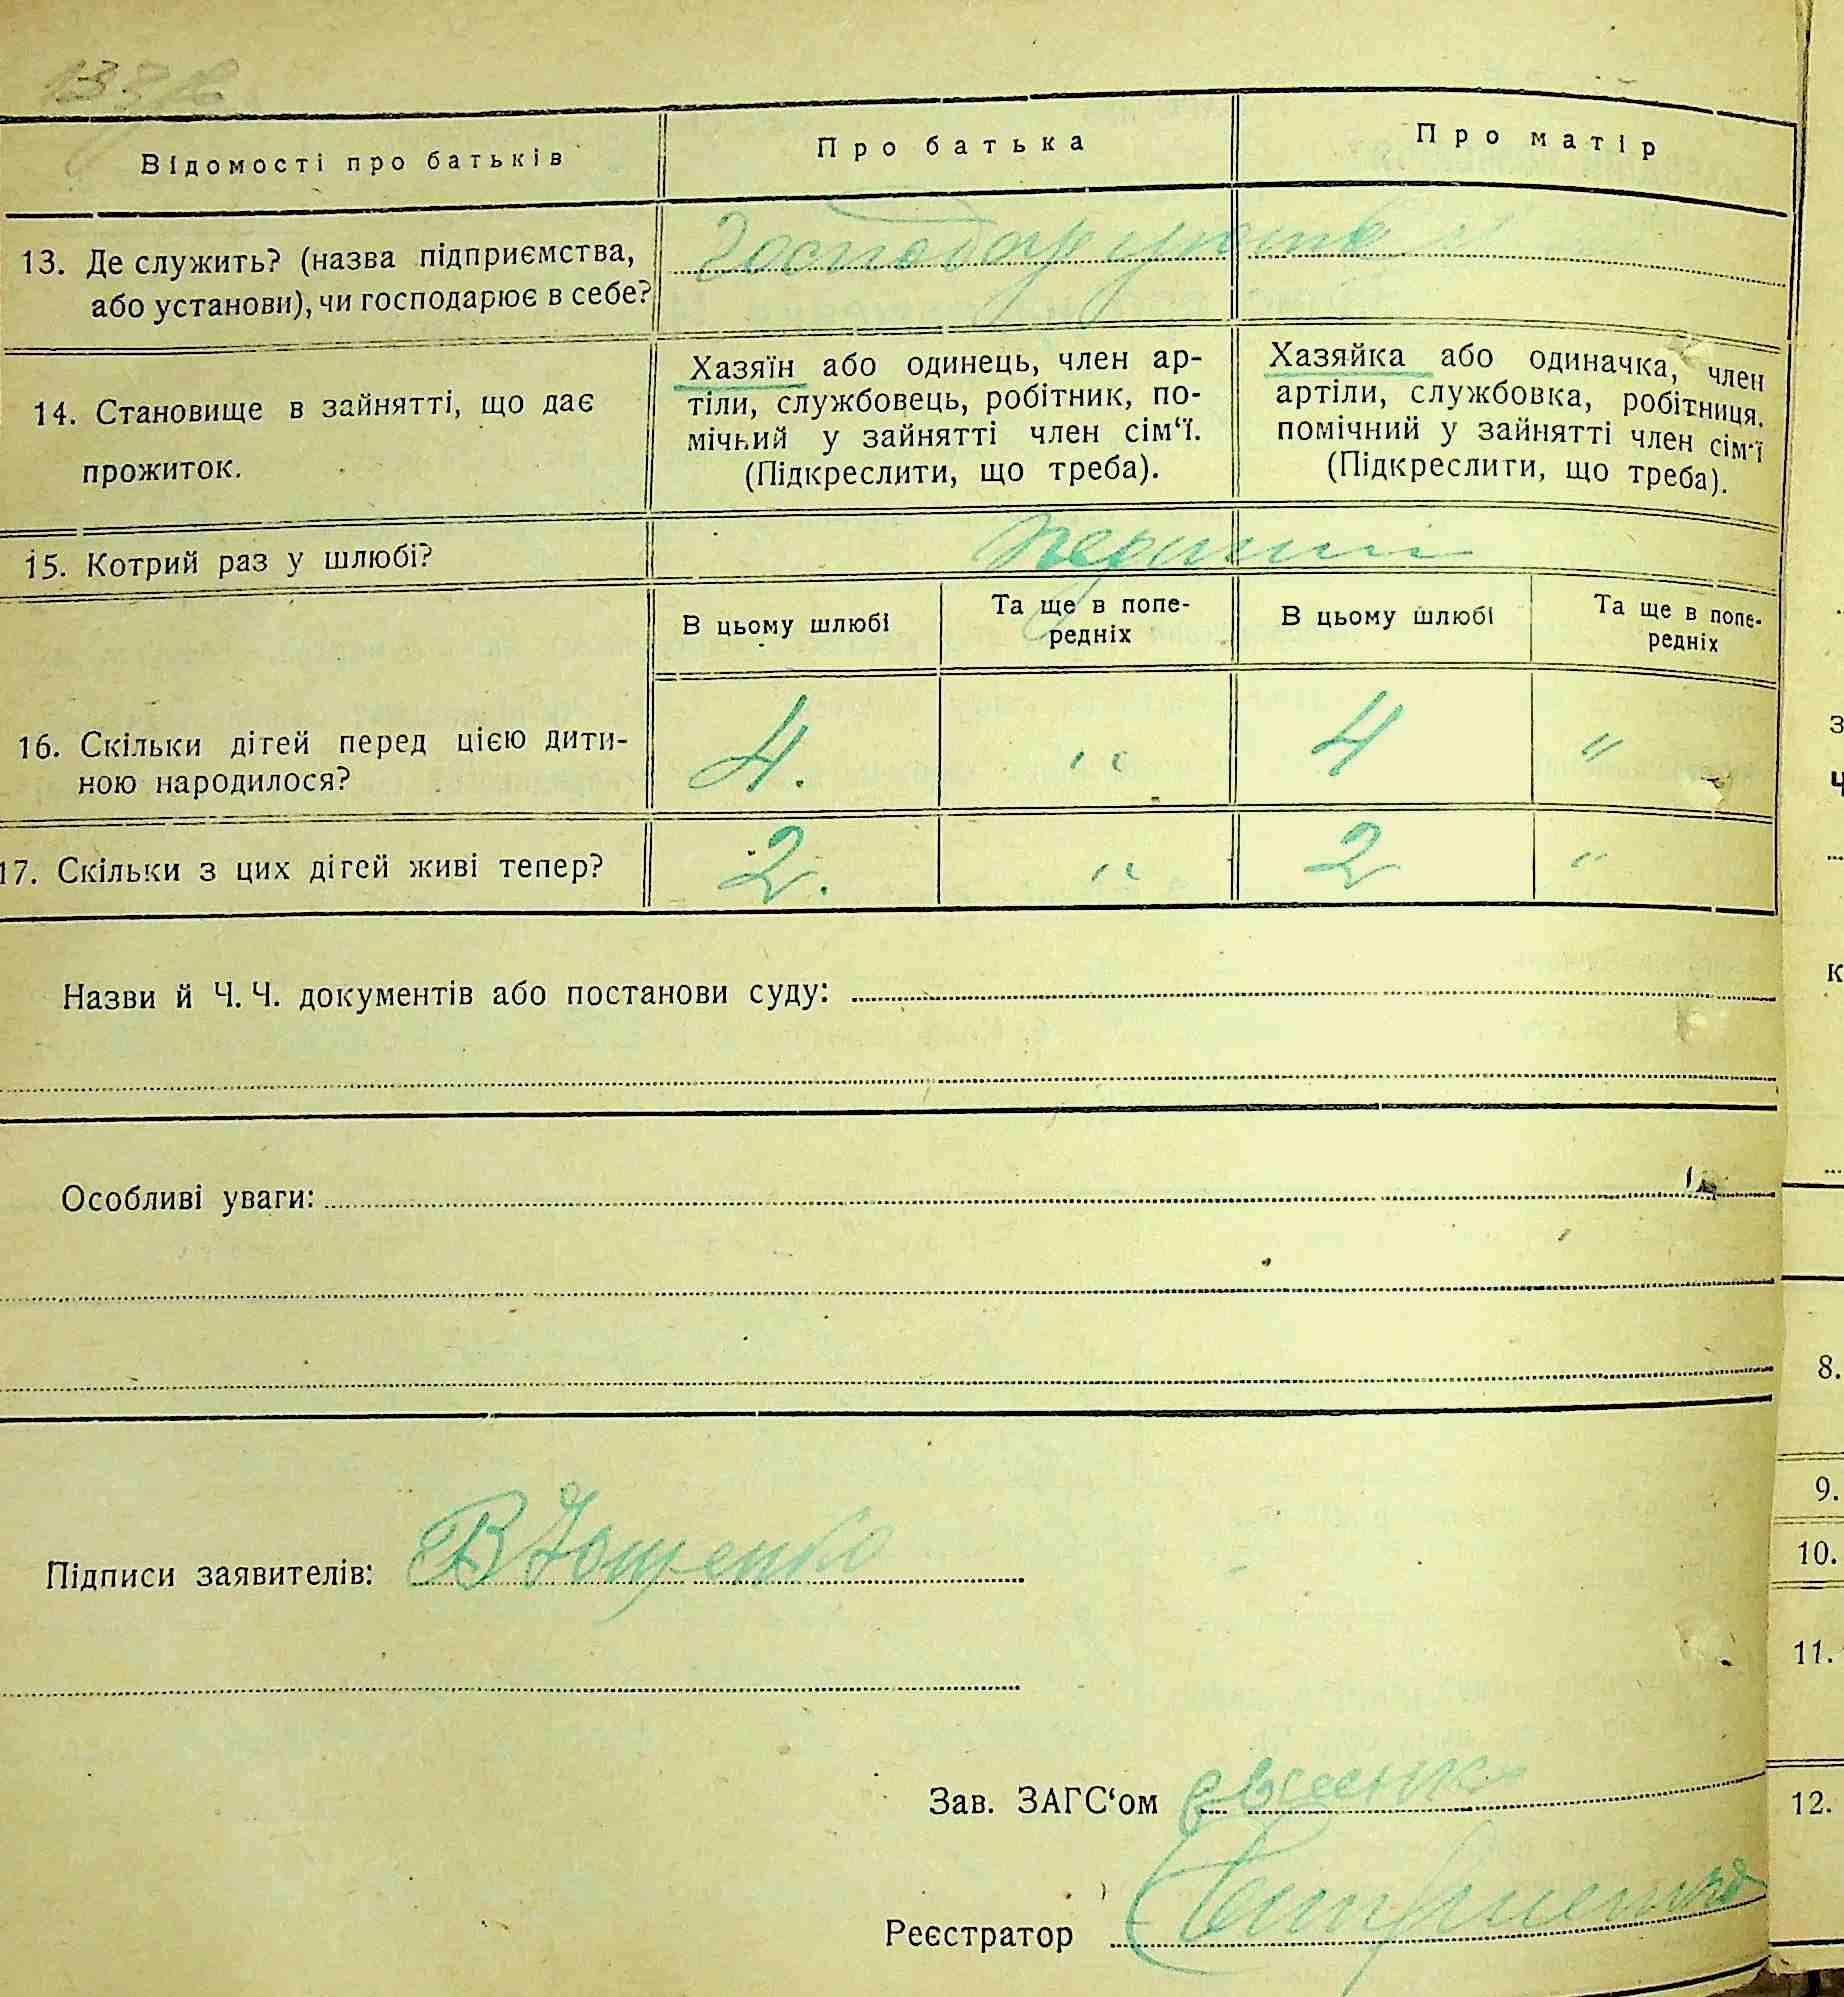 Відомості про батьків
Про батька
Про матір
13. Де служить? (назва підприємства,
або установи), чи господарює в себе?
Господарують
14. Становище в зайнятті, що дає
прожиток.
Хазяїн або одинець, член ар-
тіли, службовець, робітник, по-
мічний у зайнятті член сім‘ї.
(Підкреслити, що треба).
Хазяйка або одиначка, член
артіли, службовка, робітниця,
помічний у зайнятті член сім‘ї
(Підкреслити, що треба).
15. Котрий раз у шлюбі?
перший
В цьому шлюбі
Та ще в попе-
редніх
В цьому шлюбі
Та ще в попе-
редніх
16. Скільки дітей перед цією дити-
ною народилося?
4. " 4 "
17. Скільки з цих дітей живі тепер?
2. " 2 "
Назви й Ч. Ч. документів або постанови суду:
Особливі уваги:
Підписи заявителів:
Зав. ЗАГС‘ом
Реєстратор
8.
9.
10.
11.
12.